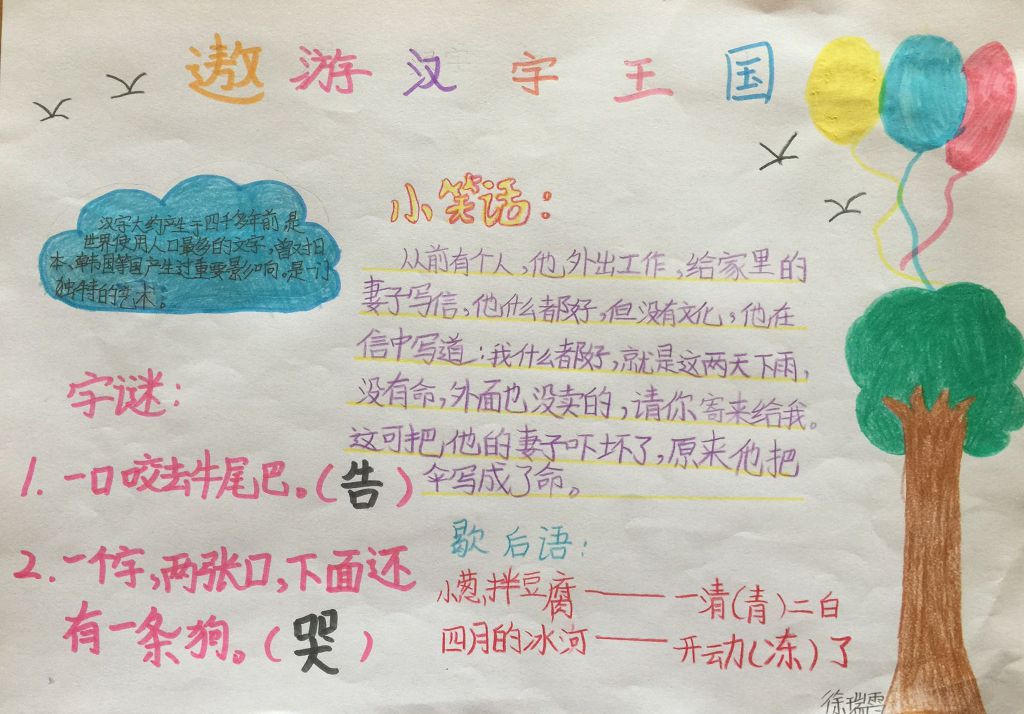 遨游汉字王国
汉字大约产生于四千多年前,是
世界使用人口最多的文字,曾对日
本、韩国等国产生过重要影响。是一门
独特的艺术。
小笑话:
从前有个人,他,外出工作,给家里的
妻子写信,他什么都好,但没有文化,他在
信中写道:我什么都好,就是这两天下雨,
没有命,外面也没卖的,请你寄来给我。
这可把他的妻子吓坏了,原来他把
伞写成了命。
字谜:
1.一口咬去牛尾巴。(告)
2.一个字,两张口,下面还
有一条狗。(哭)
歇后语:
小葱拌豆腐——一清(青)二白
四月的冰河——开动(冻)了
徐瑞雪